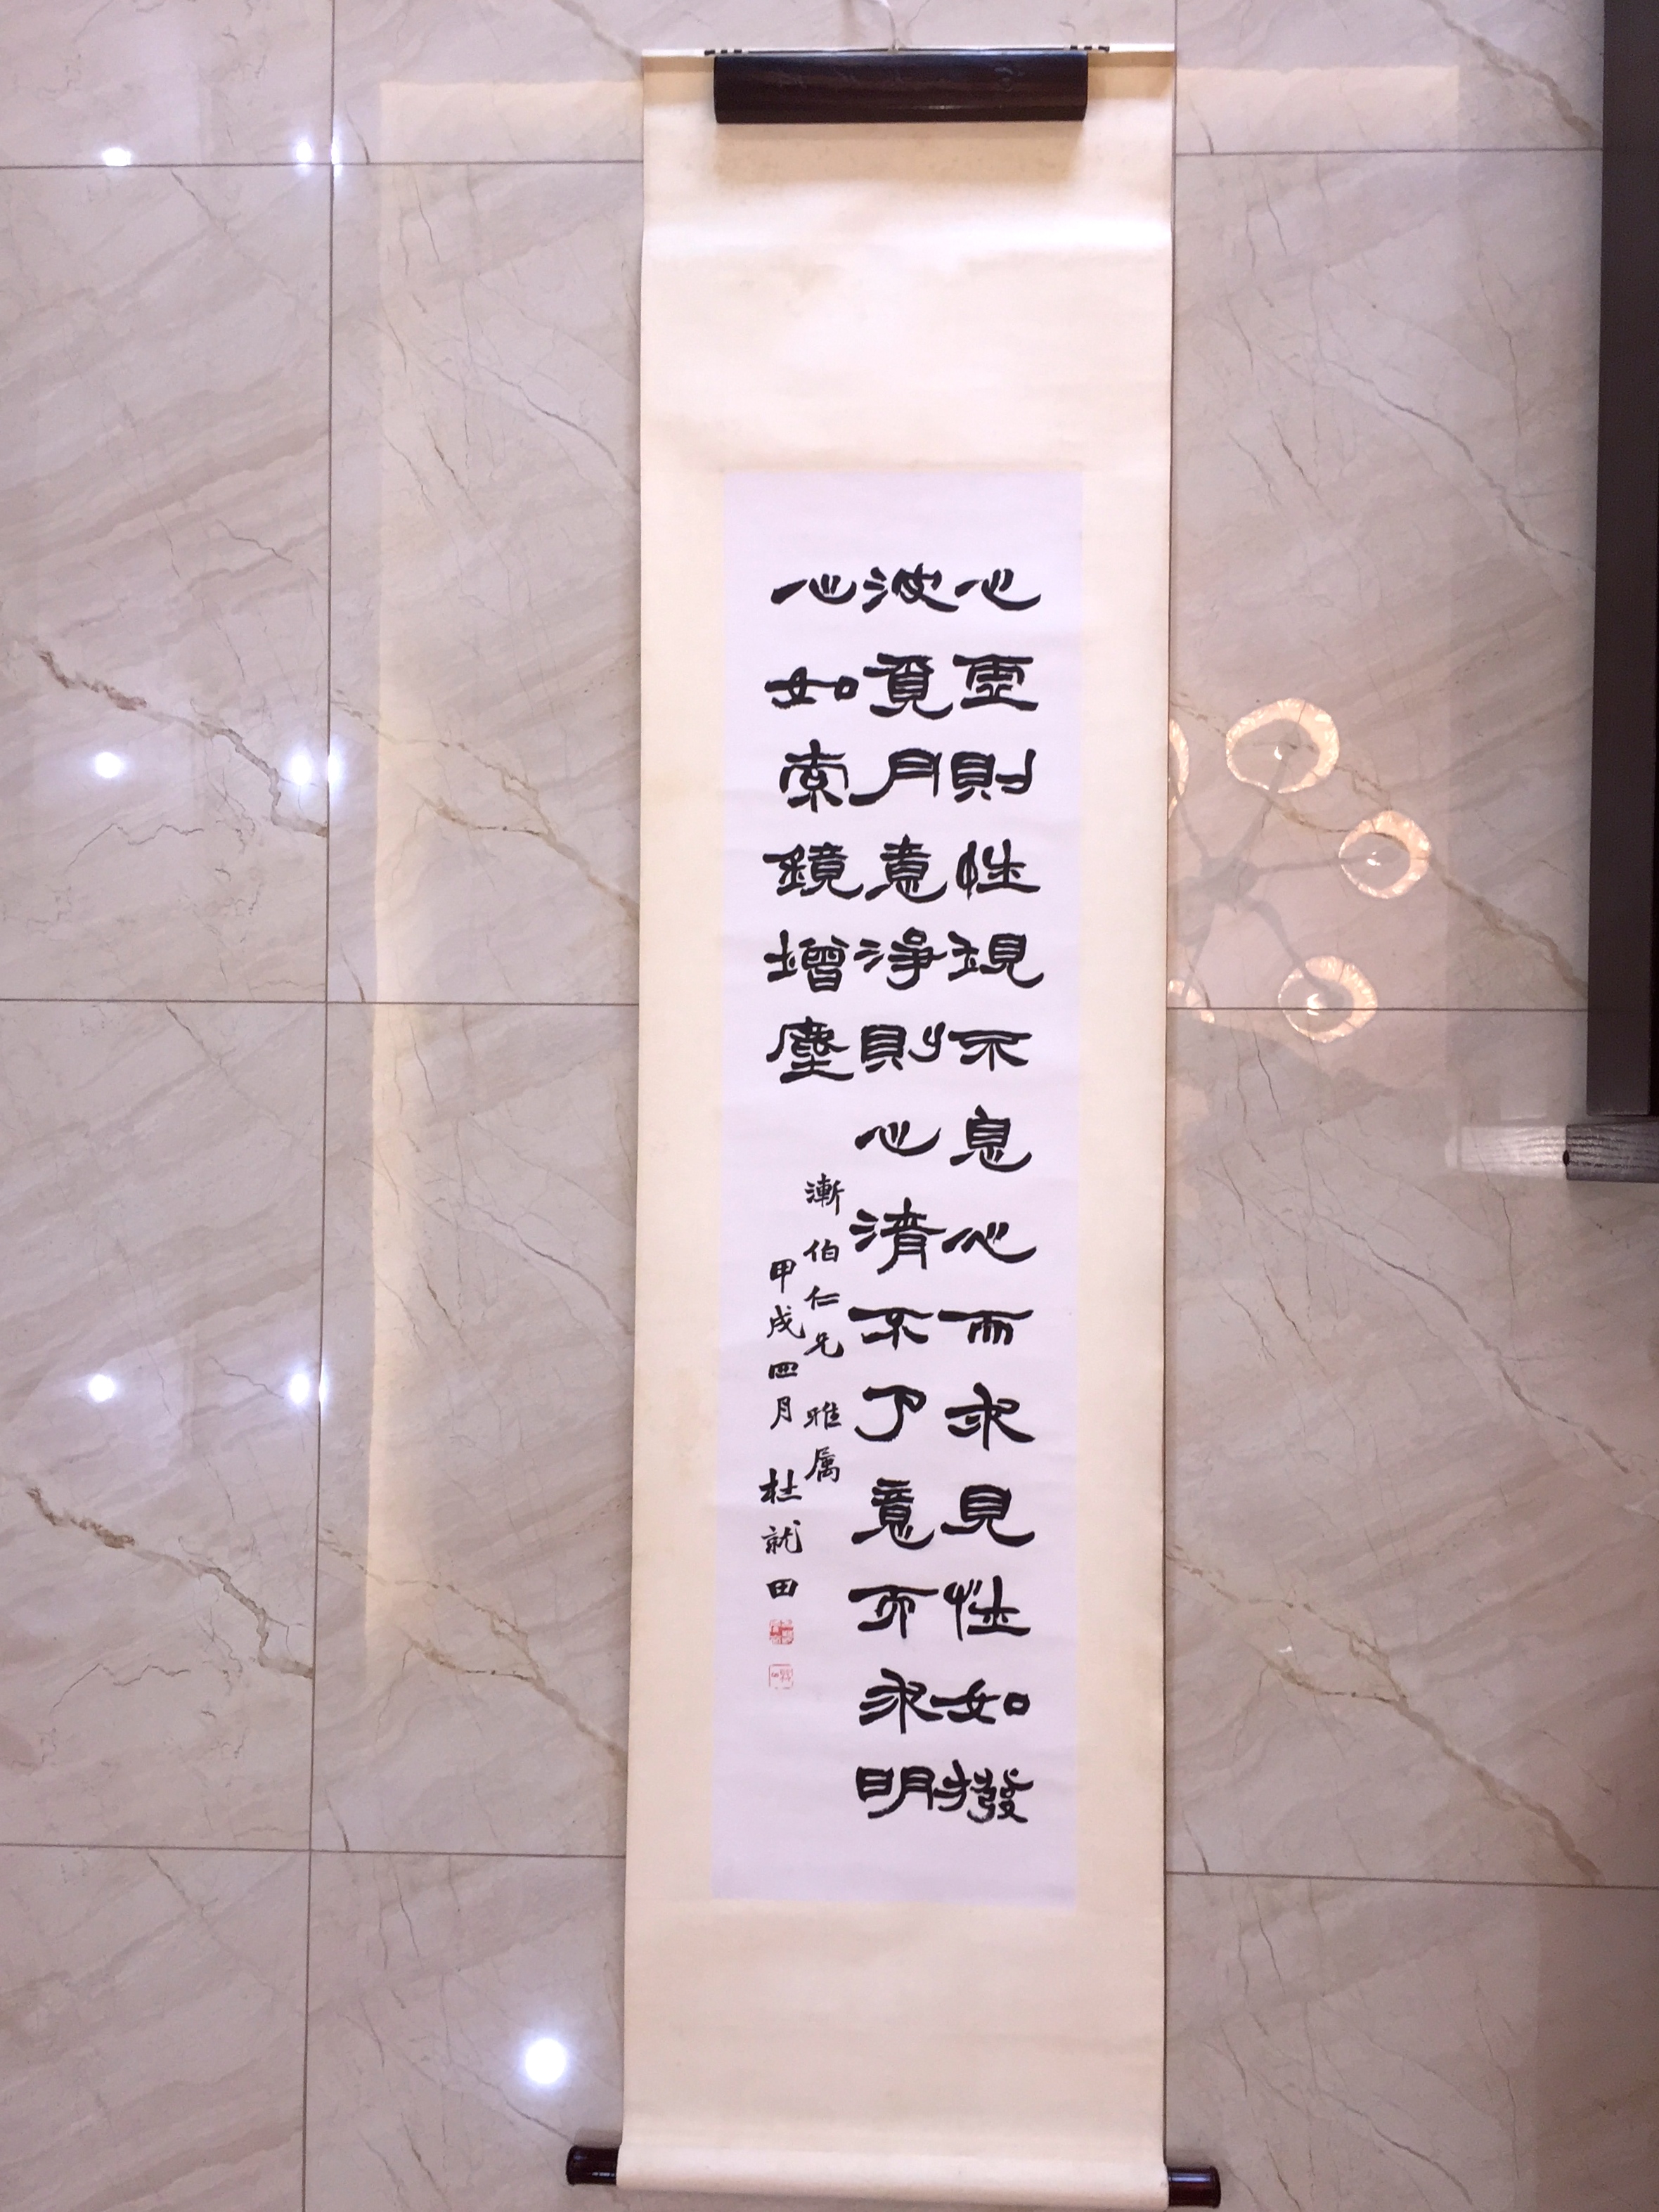 心虛則性現不息心而求見性如撥
波覓月意淨則心清不了意而求明
心如索鏡增塵
漸伯仁兄 雅属
甲戌四月 杜就田